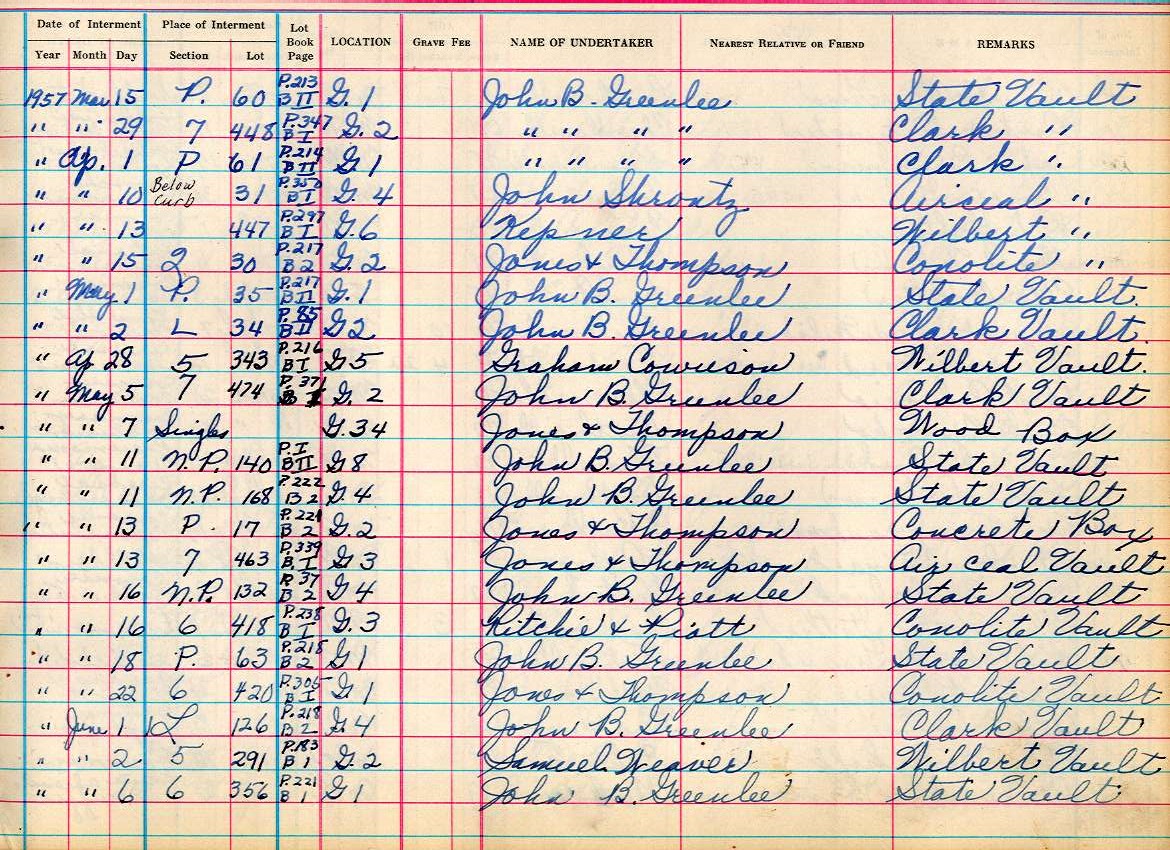 Date of Interment Place of Interment Lot Book Page LOCATION GRAVE FEE NAME OF UNDERTAKER NEAREST RELATIVE OR FRIEND REMARKS
Year Month Day Section Lot
1957 Mar 15 P. 60 P.213 B II G. 1 John B. Greenlee State Vault
" " 29 7 448 P.347 B I G. 2 " " " " Clark "
" Ap. 1 P 61 P.214 B II G 1 " " " " Clark "
" " 10 Below Curb 31 P.350 B I G. 4 John Shrontz Airceal "
" " 13 447 P.297 B I G.6 Kepner Wilbert "
" " 15 2 30 P.217 B 2 G. 2 Jones & Thompson Conolite "
" May 1 P. 35 P.217 B II G. 1 John B. Greenlee State Vault.
" " 2 L 34 P. 85 B II G 2 John B. Greenlee Clark Vault.
" Ap 28 5 343 P.216 B I G 5 Graham Cowieson Wilbert Vault.
" May 5 7 474 P. 371 B I G. 2 John B. Greenlee Clark Vault
" " 7 Singles G.34 Jones & Thompson Wood Box
" " 11 N.P. 140 P.I B II G 8 John B. Greenlee State Vault
" " 11 N.P. 168 P.222 B 2 G. 4 John B. Greenlee State Vault
" " 13 P. 17 P.221 B 2 G. 2 Jones & Thompson Concrete Box
" " 13 7 463 P.339 B, I G 3 Jones & Thompson Air ceal Vault
" " 16 N.P. 132 P 37 B 2 G 4 John B. Greenlee State Vault
" " 16 6 418 P.238 B I G. 3 Ritchie & Piatt Conolite Vault
" " 18 P. 63 P.218 B 2 G 1 John B. Greenlee State Vault
" " 22 6 420 P.305 B I G 1 Jones & Thompson Conolite Vault
" June 1 L 126 P.218 B 2 G. 4 John B. Greenlee Clark Vault
" " 2 5 291 P.183 B 1 G. 2 Samuel Weaver Wilbert Vault
" " 6 6 356 P.221 B 1 G 1 John B. Greenlee State Vault